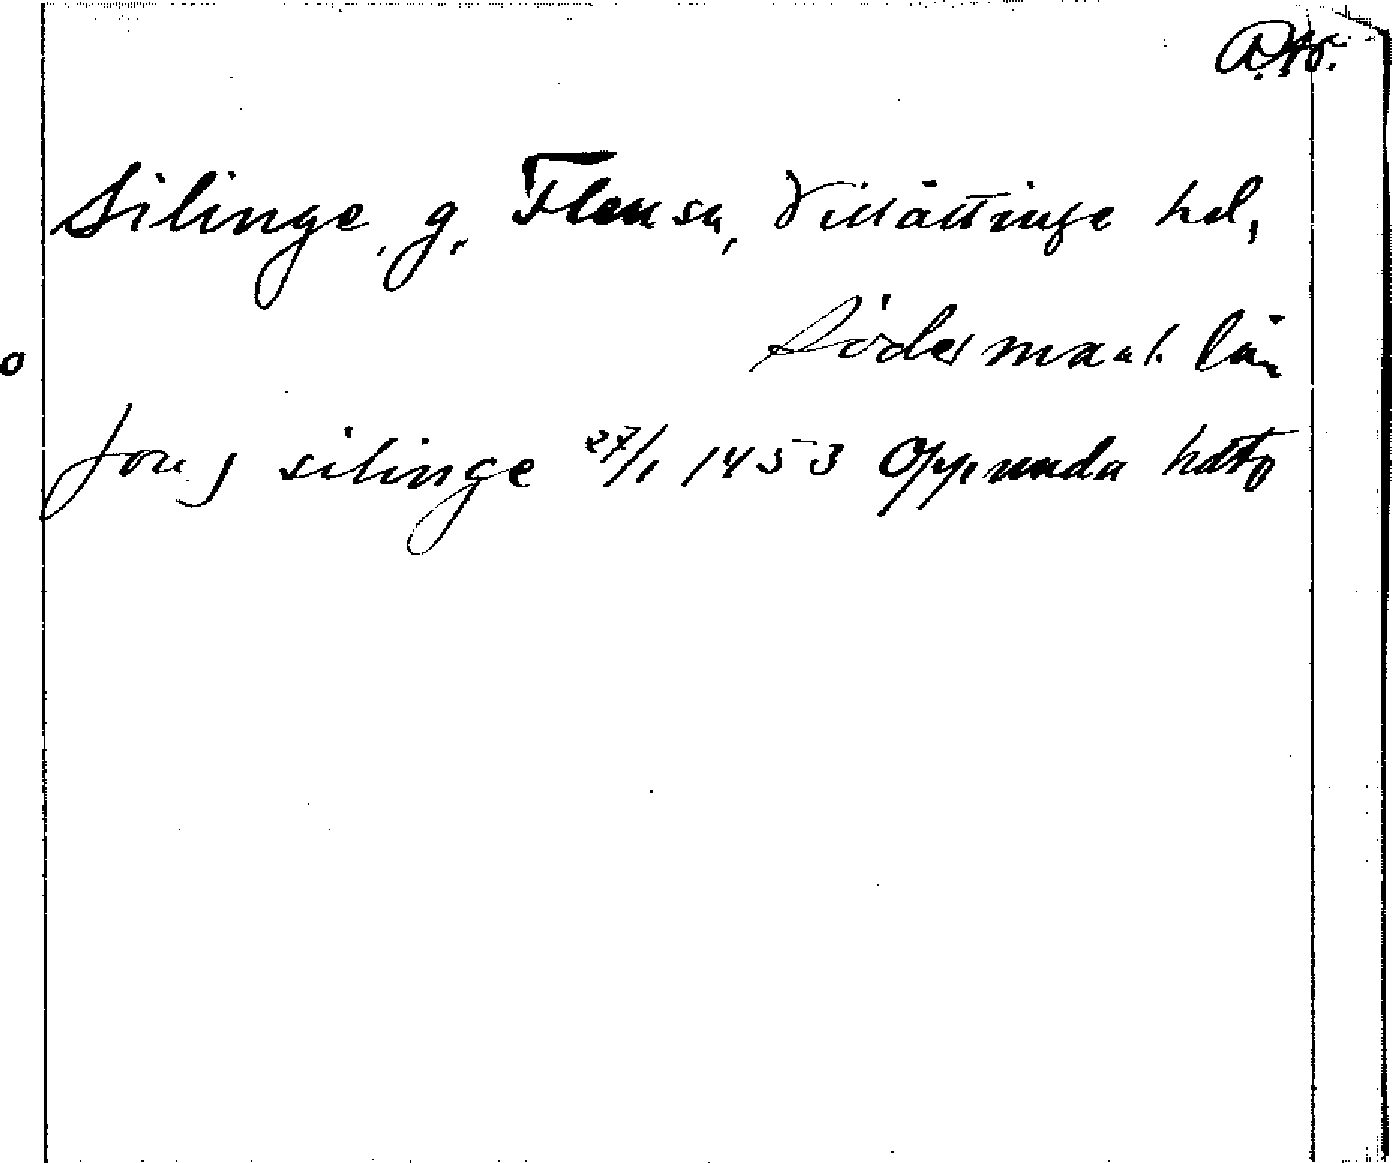 Silinge, g, Flens sn, Villåttinge hd,
Södermanl. län
o
Jon j silinge 27/1 1453 Oppunda hdtb